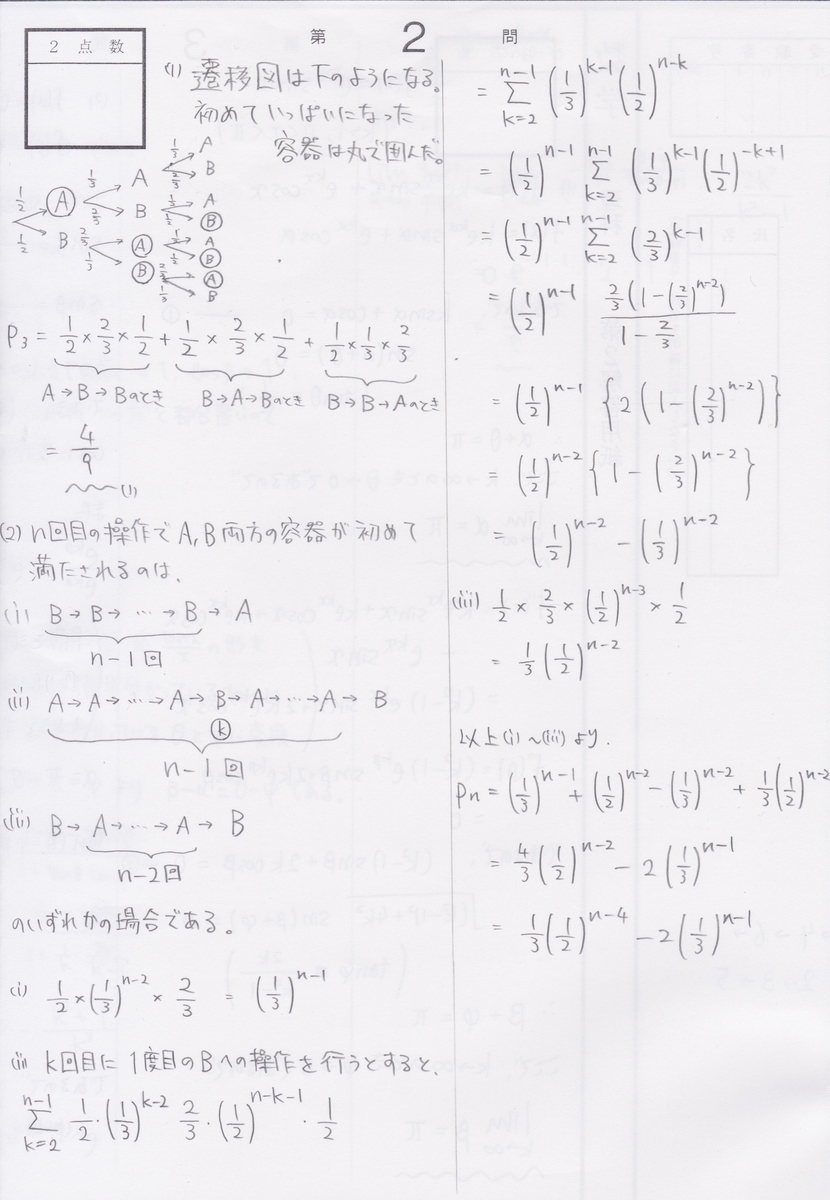 2 点 数
第 2 問
(1) 遷移図は下のようになる。
初めていっぱいになった
容器は丸で囲んだ。
1/2 A 1/3 A 1/3 A
2/3 B
2/3 B 1/3 A
1/2 B
1/2 B 2/3 A 1/2 A
1/2 B
1/3 B 2/3 A
1/3 B
P3 = 1/2 × 2/3 × 1/2 + 1/2 × 2/3 × 1/2 + 1/2 × 1/3 × 2/3
A→B→Bのとき B→A→Bのとき B→B→Aのとき
= 4/9
(1)
(2) n回目の操作でA,B両方の容器が初めて
満たされるのは、
(i) B→B→ … →B→A
n-1回
(ii) A→A→ … →A→B→A→…→A→ B
k
n-1回
(iii) B→A→…→A→ B
n-2回
のいずれかの場合である。
(i) 1/2 × (1/3)^{n-2} × 2/3 = (1/3)^{n-1}
(ii) k回目に1度目のBへの操作を行うとすると、
Σ_{k=2}^{n-1} 1/2 · (1/3)^{k-2} 2/3 · (1/2)^{n-k-1} · 1/2
= Σ_{k=2}^{n-1} (1/3)^{k-1} (1/2)^{n-k}
= (1/2)^{n-1} Σ_{k=2}^{n-1} (1/3)^{k-1} (1/2)^{-k+1}
= (1/2)^{n-1} Σ_{k=2}^{n-1} (2/3)^{k-1}
= (1/2)^{n-1} 2/3(1-(2/3)^{n-2}) / (1-2/3)
= (1/2)^{n-1} {2(1-(2/3)^{n-2})}
= (1/2)^{n-2} {1-(2/3)^{n-2}}
= (1/2)^{n-2} - (1/3)^{n-2}
(iii) 1/2 × 2/3 × (1/2)^{n-3} × 1/2
= 1/3 (1/2)^{n-2}
以上(i)~(iii)より.
Pn = (1/3)^{n-1} + (1/2)^{n-2} - (1/3)^{n-2} + 1/3 (1/2)^{n-2}
= 4/3 (1/2)^{n-2} - 2 (1/3)^{n-1}
= 1/3 (1/2)^{n-4} - 2 (1/3)^{n-1}